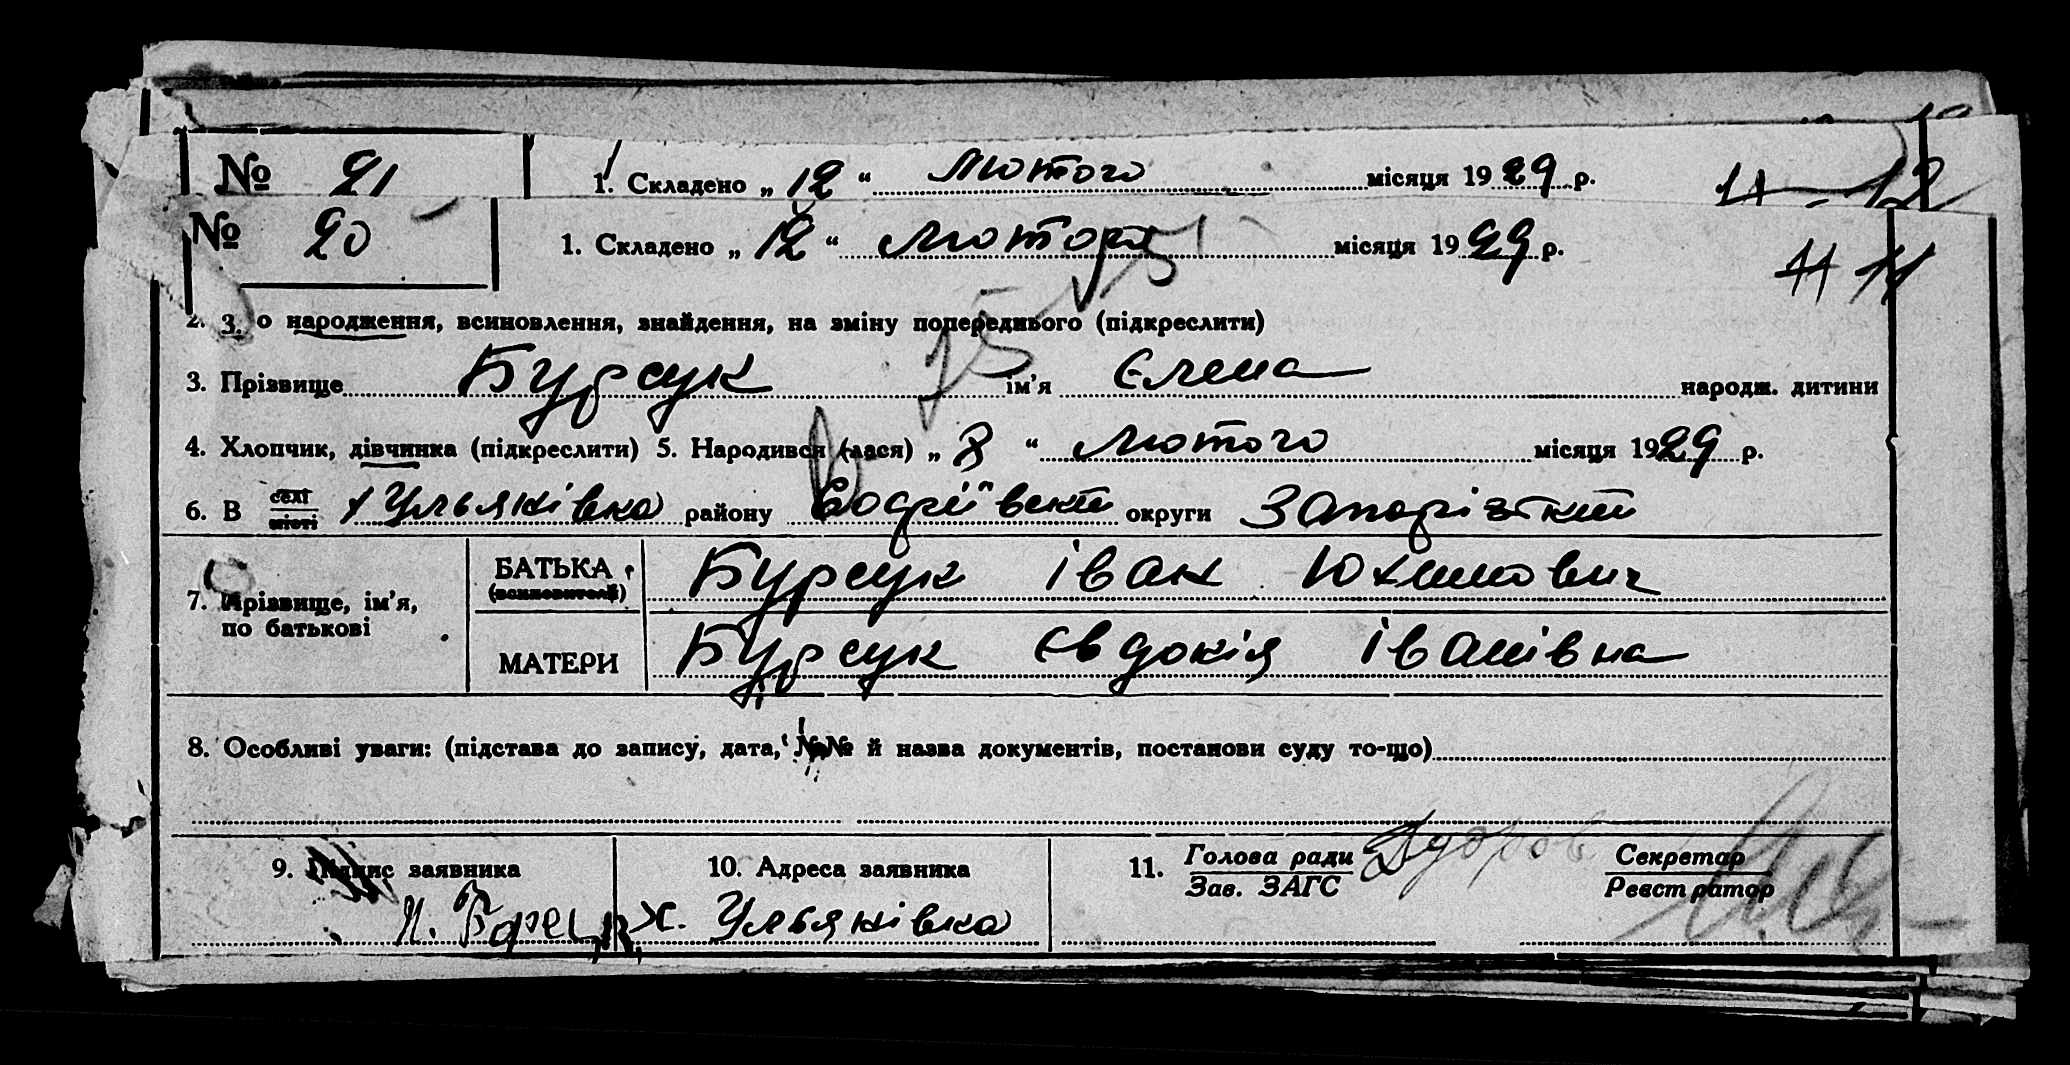 № 21 1. Складено „ 12 “ Лютого місяця 1929 р. 11 – 12
№ 20 1. Складено „ 12 “ Лютого місяця 1929 р. 11 11
15
2. З. о народження, всиновлення, знайдення, на зміну попереднього (підкреслити)
15
3. Прізвище Бурсук ім’я Єлена народж. дитини
4. Хлопчик, дівчинка (підкреслити) 5. Народився (лася) „ 8 “ Лютого місяця 1929 р.
6. В селі місті х Ульяківка району Софіївській округи Запорізький
7. Прізвище, ім’я, по батькові
БАТЬКА (всиновителя) Бурсук Іван Юхимович
МАТЕРИ Бурсук Євдокія Іванівна
8. Особливі уваги: (підстава до запису, дата, №№ й назва документів, постанови суду то-що)
9. Підпис заявника 10. Адреса заявника 11. Голова ради Секретар
Зав. ЗАГС Реєстратор
х. Ульяківка